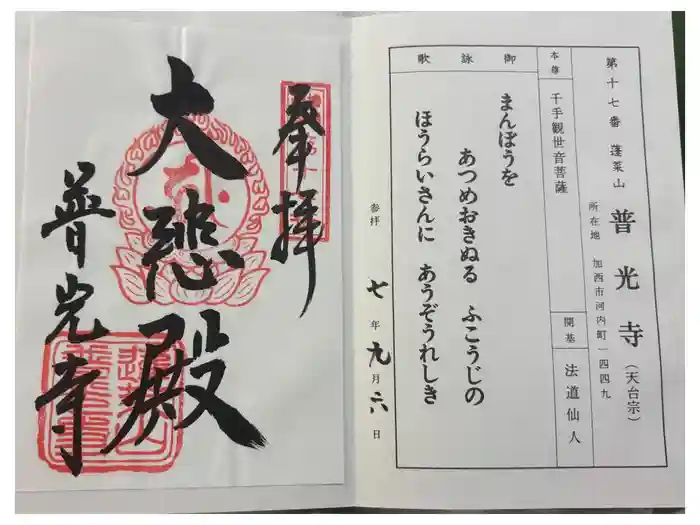 第十七番 蓬莱山 普光寺(天台宗)
所在地 加西市河内町一四四九
本尊 千手観世音菩薩
開基 法道仙人
御詠歌
まんぼうを
あつめおきぬる ふこうじの
ほうらいさんに あうぞうれしき
参拝 七年九月六日
奉拝
大悲殿
普光寺